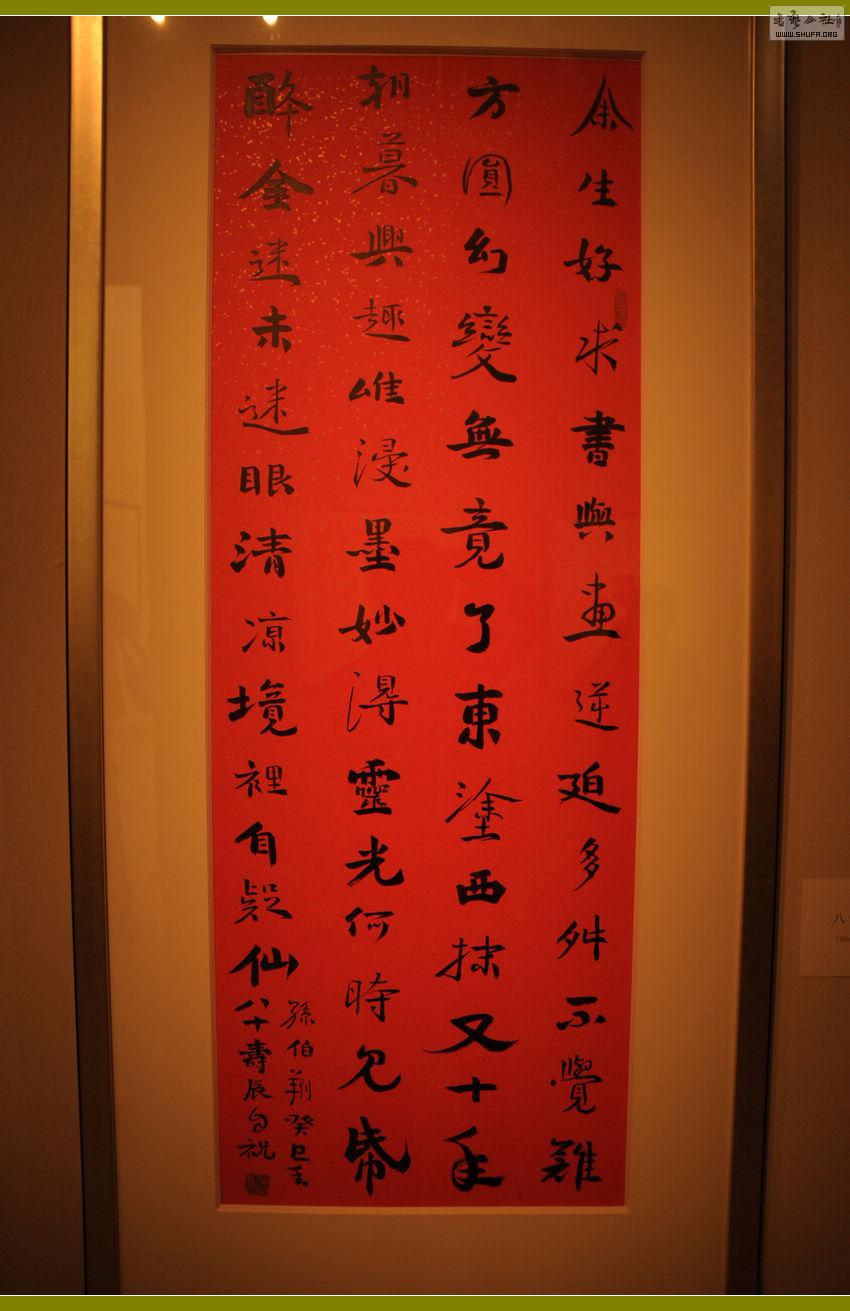 余生好求書與畫逆廹多舛不覺難
方圓幻變無竟了東塗西抹又十年
朝暮興趣唯浸墨妙得靈光何時見紙
醉金迷未迷眼清凉境裡自疑仙
孫伯翔癸巳年
八十壽辰自祝
八
WWW.SHUFA.ORG